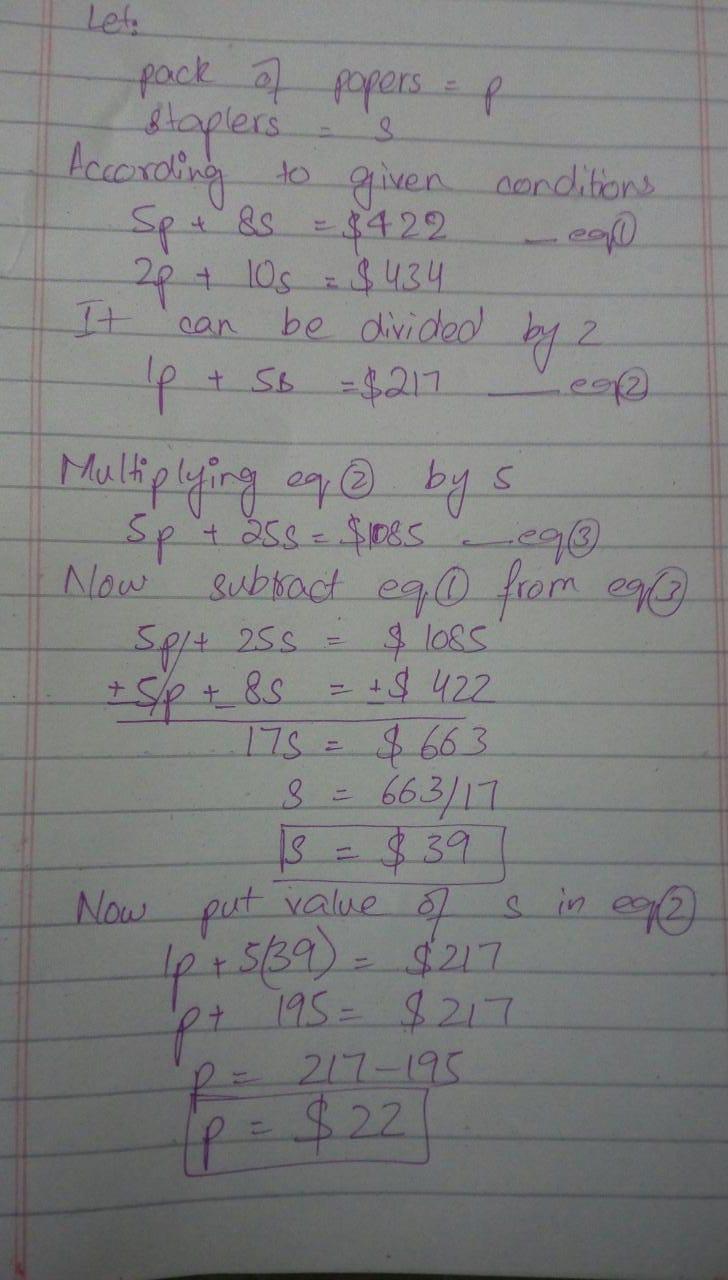 Let:
pack of papers = p
staplers = s
According to given conditions
5p + 8s = $422 — eq①
2p + 10s = $434
It can be divided by 2
1p + 5s = $217 — eq②
Multiplying eq② by 5
5p + 25s = $1085 — eq③
Now subtract eq① from eq③
5p + 25s = $1085
±5p ± 8s = ±$422
17s = $663
s = 663/17
s = $39
Now put value of s in eq②
1p + 5(39) = $217
p + 195 = $217
p = 217-195
p = $22